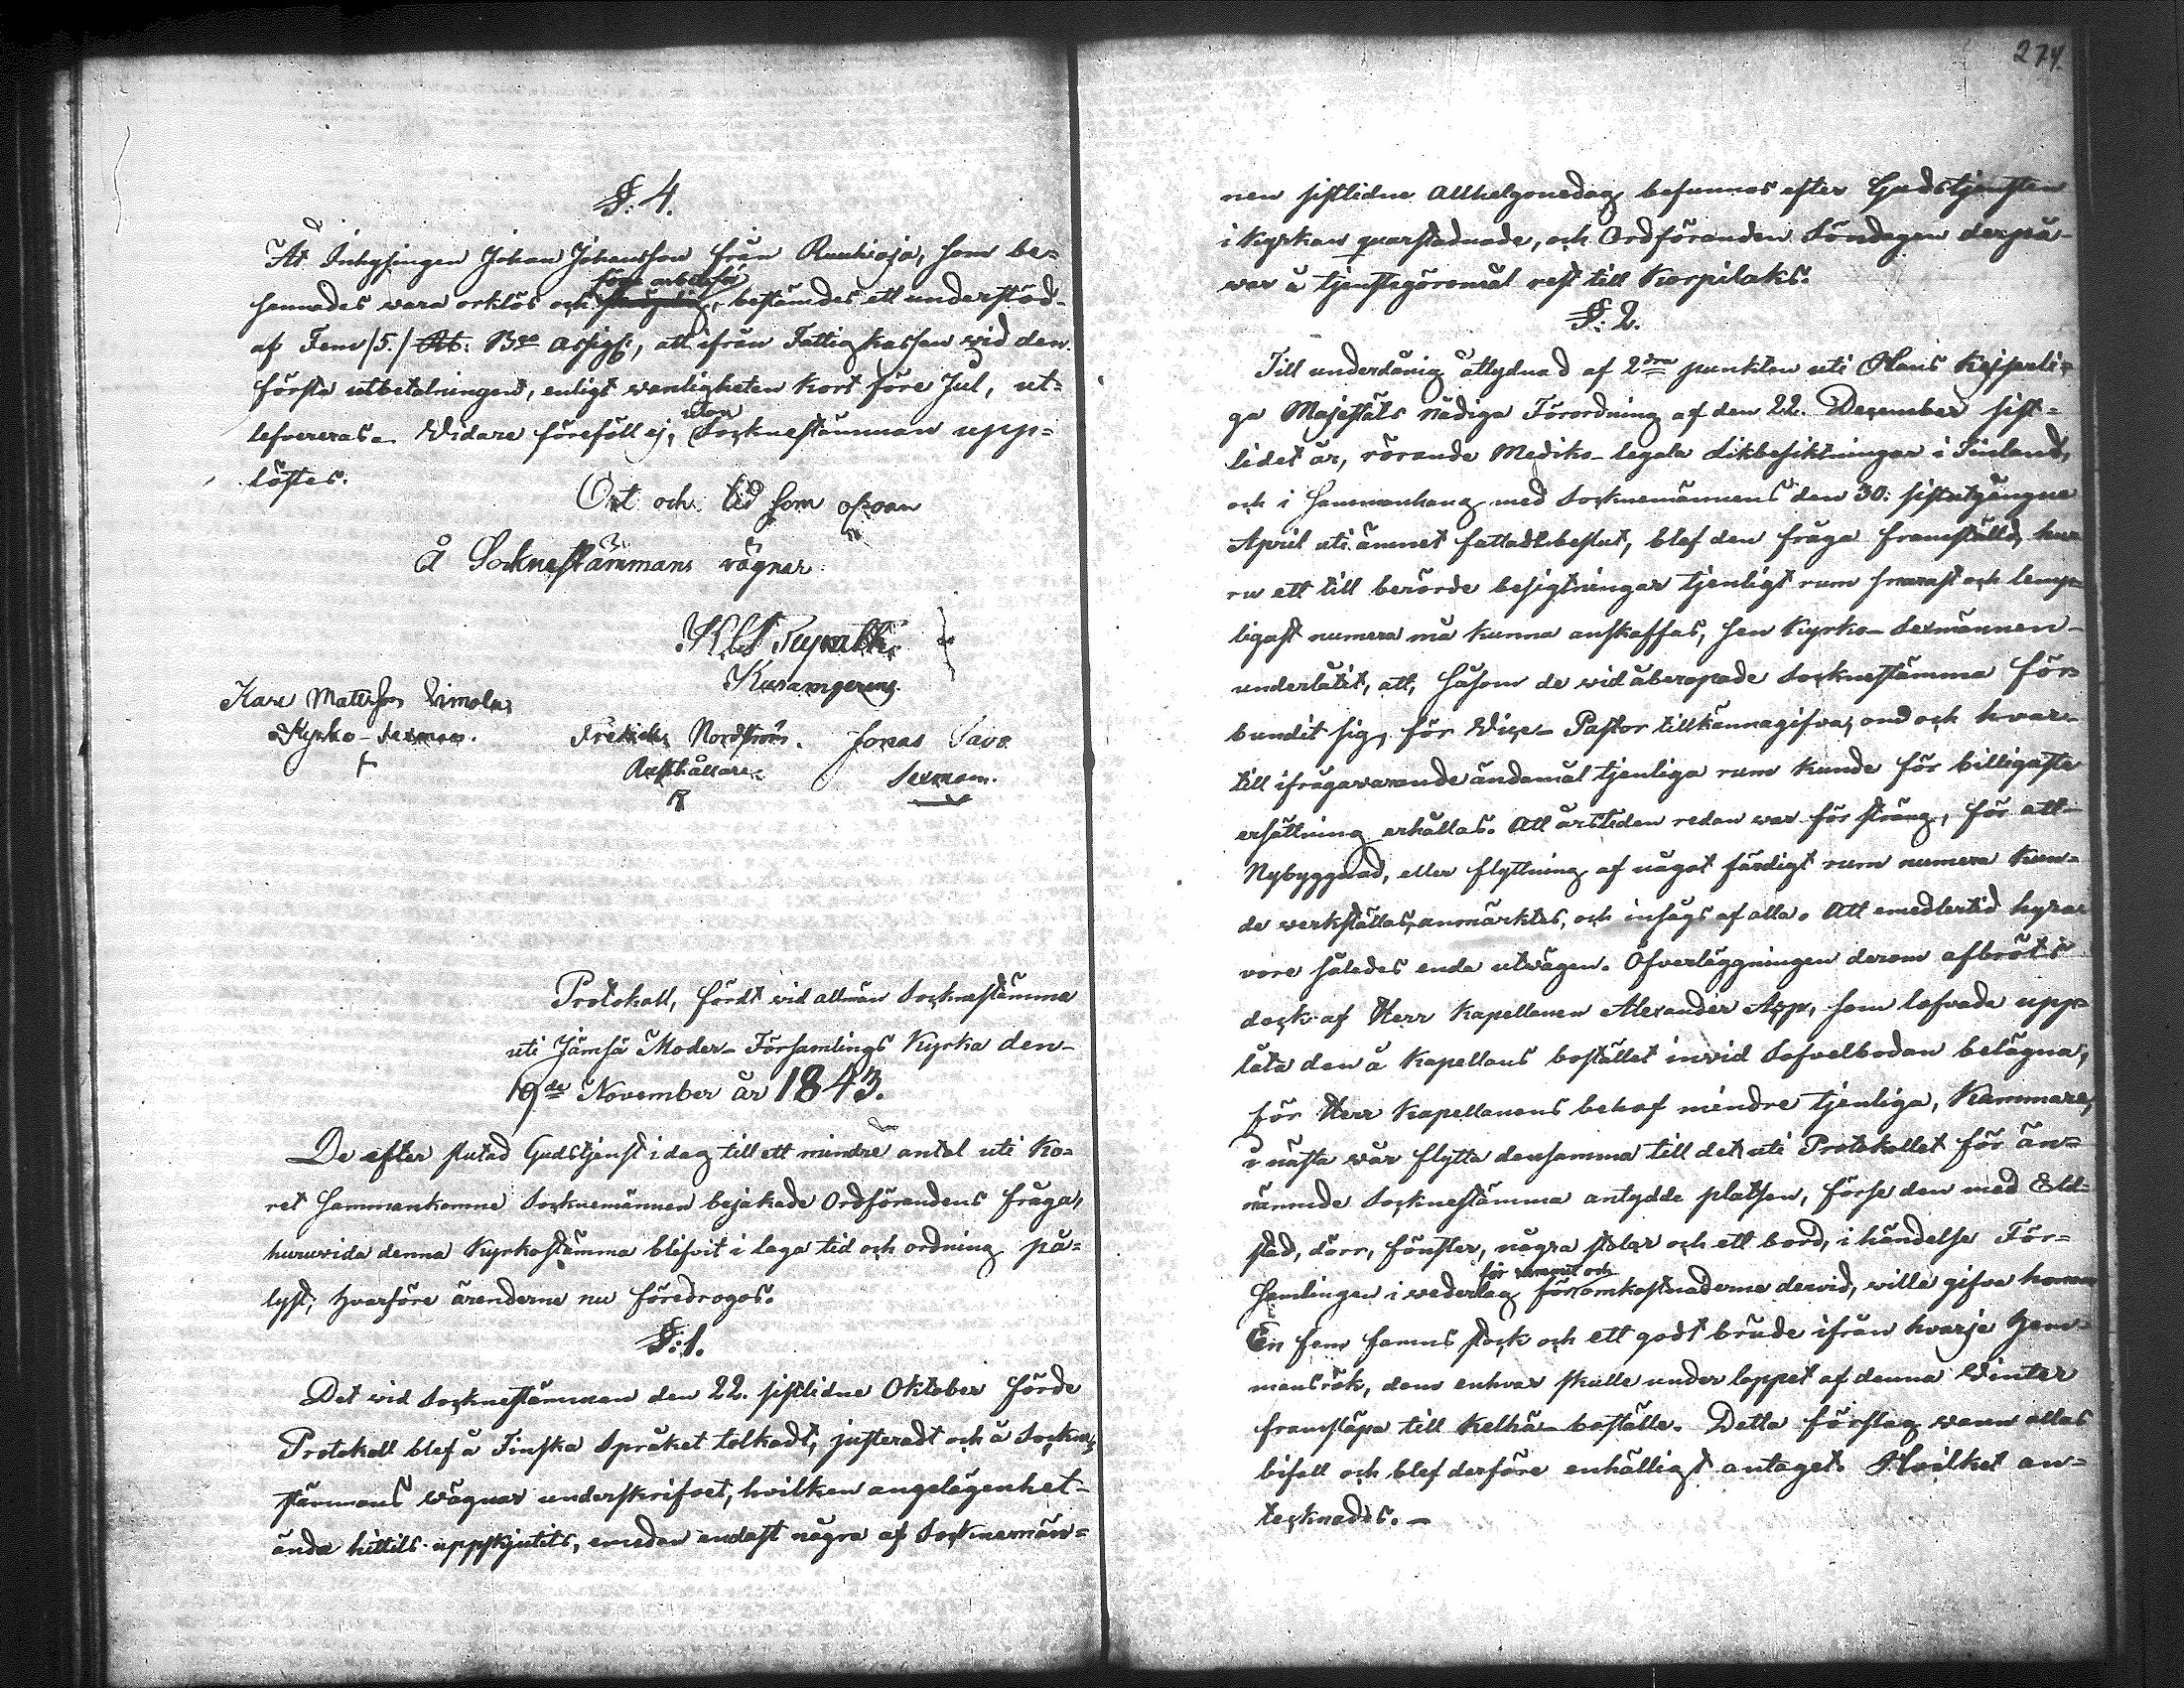 §. 4.
Åt Inhysingen Johan Johansson från Ruuhioja, som be-
fannades vara orklös och föga arbetsför, bestämdes ett understöd
af Fem /5./ Rb. Bco Assigs:, att ifrån Fattigkassan vid den
första utbetalningen, enligt vanligheten kort före Jul, ut-
lefvereras. Widare föreföll ej, utan Socknestämman upp-
löstes.
Ort och tid som ofvan
Å Socknestämmans vägnar
Karl Mattsson
Kyrko-Sexman.
Fredrik Nordström. Jonas Savo
Rusthållare Sexman.
Protokoll, fördt vid allmän Socknestämma
uti Jämsä Moder-Församlings Kyrka den
19de November år 1843.
De efter slutad Gudstjenst i dag till ett mindre antal uti Ko-
ret sammankomne Socknemännen bejakade Ordförandens fråga,
huruvida denna Kyrkostämma blifvit i laga tid och ordning på-
lyst; hvarföre ärenderne nu föredrogos.
§. 1.
Det vid Socknestämman den 22. sistlidne Oktober förde
Protokoll blef å Finska Språket tolkadt, justeradt och å Sockne-
stämmans vägnar underskrifvet, hvilken angelägenhet
ända hittils uppskjutits, emedan endast några af Socknemän-
274.
nen sistlidne Allhelgonedag befunnos efter Gudstjensten
i Kyrkan quarstadnade, och Ordföranden Söndagen derpå
var å tjenstegöromål rest till Korpilaks.
§. 2.
Till underdånig åtlydnad af 2dra punkten uti Hans Kejserli-
ga Majestäts Nådiga Förordning af den 22. December sist-
lidet år, rörande Mediko-legala Likbesiktningar i Finland,
och i sammanhang med Socknemännens den 30. sistutgångne
April uti ämnet fattadt beslut, blef den fråga framställd, hu-
ru ett till berörde besigtningar tjenligt rum snarast och lemp-
ligast numera må kunna anskaffas, sen Kyrko-Sexmännen
underlåtit, att, såsom de vid åberopade Socknestämma för-
bundit sig, för Vice-Pastor tillkännagifva, om och hvar
till ifrågavarande ändamål tjenliga rum kunde för billigaste
ersättning erhållas. Att årstiden redan var för sträng, för att
Nybyggnad, eller flyttning af något färdigt rum numera kun-
de verkställas, anmärktes, och insågs af alla. Att emedlertid hyra
vore således enda utvägen. Öfverläggningen derom afbröts
dock af Herr Kapellanen Alexander Asp, som lofvade upp-
låta den å Kapellans bostället invid Sofvelbodan belägna,
för Herr Kapellanens behof mindre tjenliga, Kammare,
i nästa vår flytta densamma till det uti Protokollet för än-
nämnde Socknestämma antydde platsen, förse den med Eld-
stad, dörr, fönster, några stolar och ett bord, i händelse För-
samlingen i vederlag för rummet och för omkostnaderne dervid, ville gifva honom
En fem famns stock och ett godt bräde ifrån hvarje Hem-
mansrök, dem enhvar skulle under loppet af denna Vinter
framsläpa till Kelhä-boställe. Detta förslag vann allas
bifall och blef derföre enhälligt antaget. Hvilket an-
tecknades.